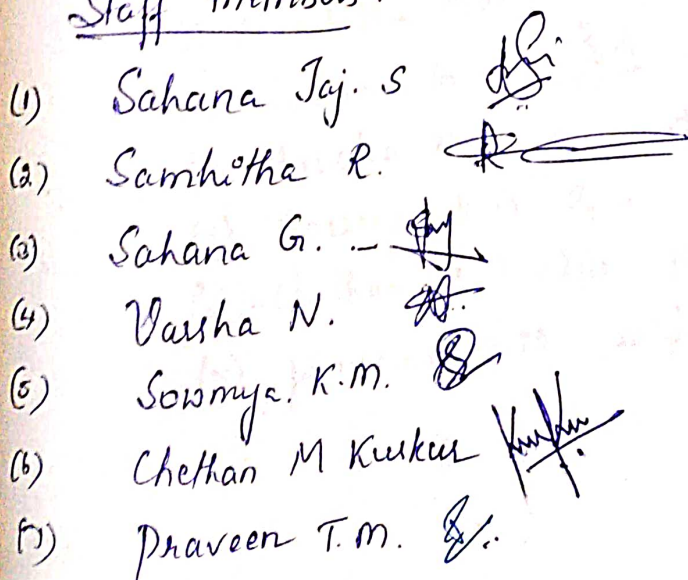 Staff Members.
(1) Sahana Taj. S
(2) Samhitha R.
(3) Sahana G. -
(4) Varsha N.
(5) Sowmya. K.M.
(6) Chethan M Kurkur
(7) Praveen T.M.